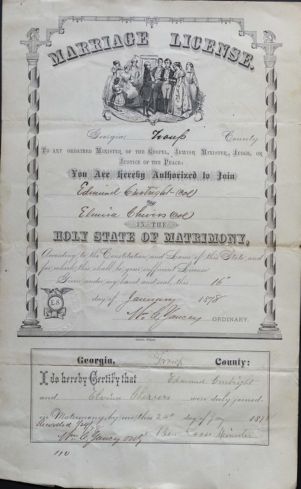 MARRIAGE LICENSE.
Georgia, Troup County
TO ANY ORDAINED MINISTER OF THE GOSPEL, JEWISH MINISTER, JUDGE, OR
JUSTICE OF THE PEACE:
You Are Hereby Authorized to Join
Edmund (Col)
Elmira (Col)
IN THE
HOLY STATE OF MATRIMONY,
According to the Constitution and Laws of this State, and
for which this shall be your sufficient License
Given under my hand and seal, this 16th
L.S.
day of January 1878
Wm. C. Yancey ORDINARY.
Georgia, Troup County:
I do hereby Certify that Edmund
and were duly joined
in Matrimony by me, this day of 187
Recorded
Wm C Yancey Minister